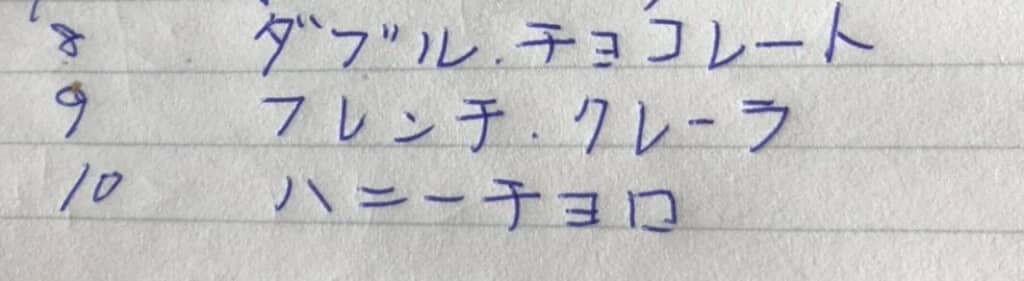 8 ダブル.チョコレート
9 フレンチ.クレーラ
10 ハニーチョロ